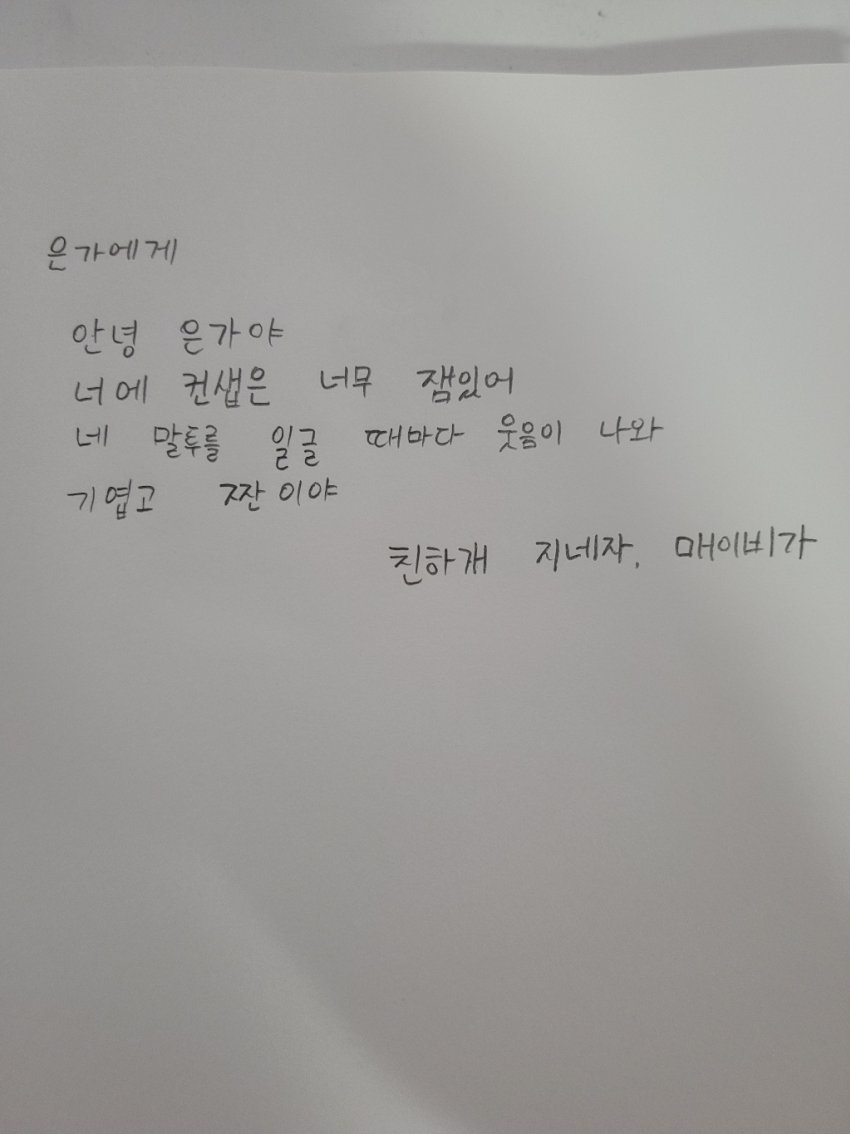 은가에게
안녕 은가야
너에 컨샙은 너무 잼있어
네 말투를 일글 때마다 웃음이 나와
기엽고 짱이야
친하개 지네자. 매이비가